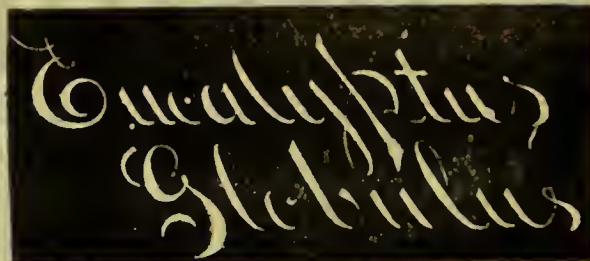 Eucalyptus
Globulus